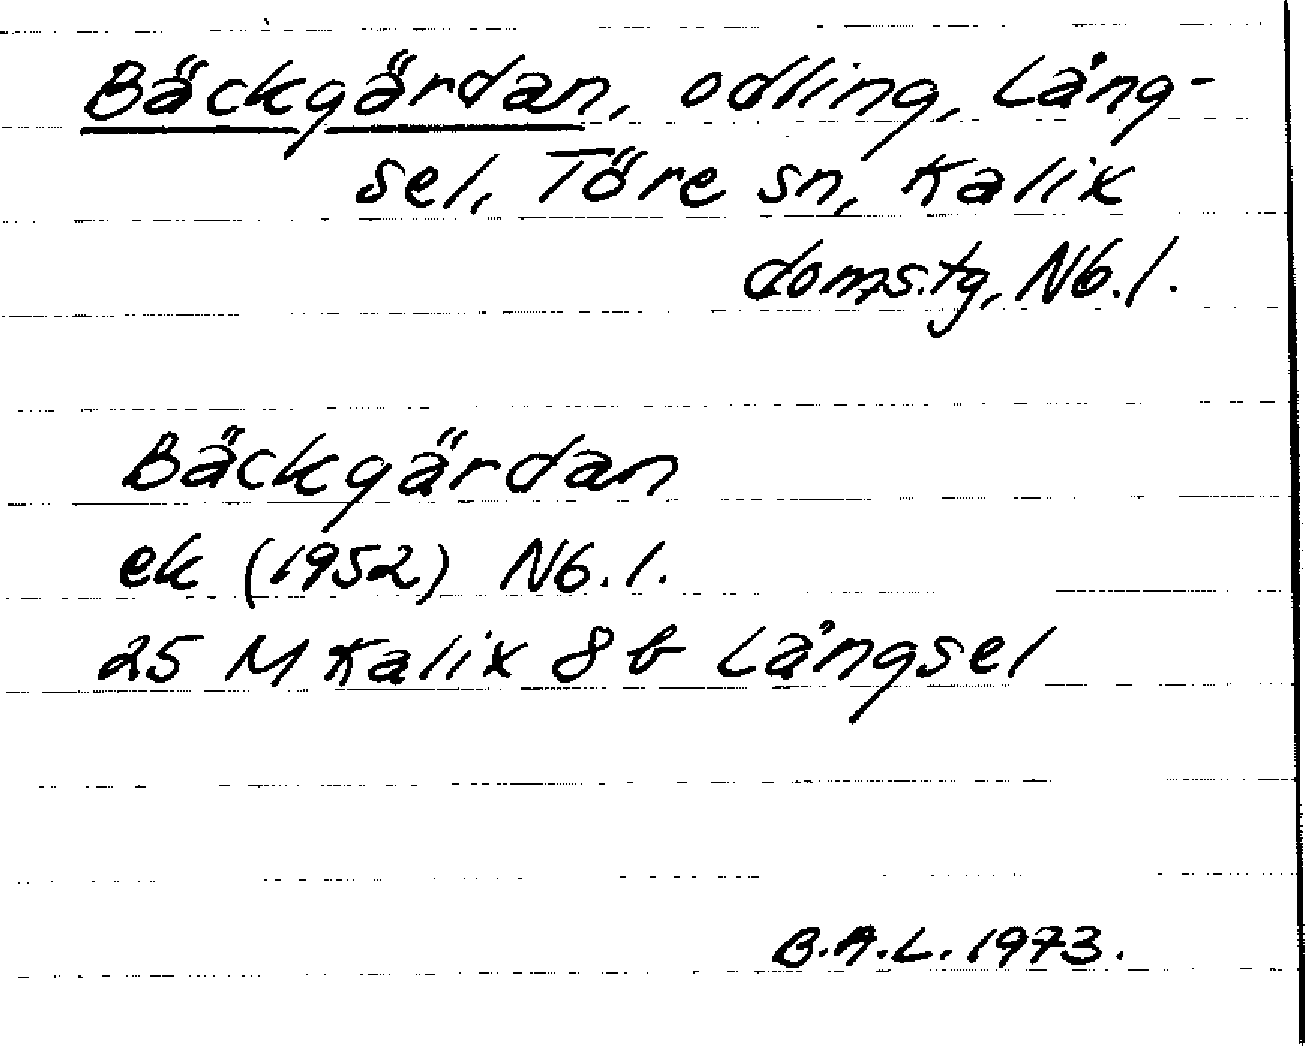 Bäckgärdan, odling, Lång-
sel, Töre sn, Kalix
doms.tg, Nb.l.
Bäckgärdan
ek (1952) Nb.l.
25 M Kalix 8 b Långsel
B.A.L. 1973.